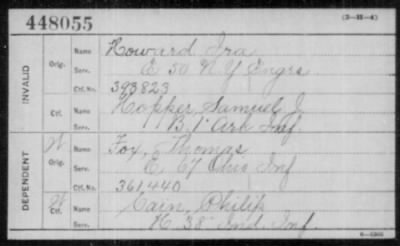 448055
(3-211-4)
INVALID
Orig.
Name Howard Ira
Serv. E 50 N Y Engrs
Ctf. No. 393823
Ctf.
Name Hopper, Samuel J
Serv. B. 1" Ark Inf.
DEPENDENT
W
Orig.
Name Fox, Thomas
Serv. E 67 Ohio Inf
Ctf. No. 361440
W
Ctf.
Name Cain, Philip
Serv. K 38" Ind. Inf.